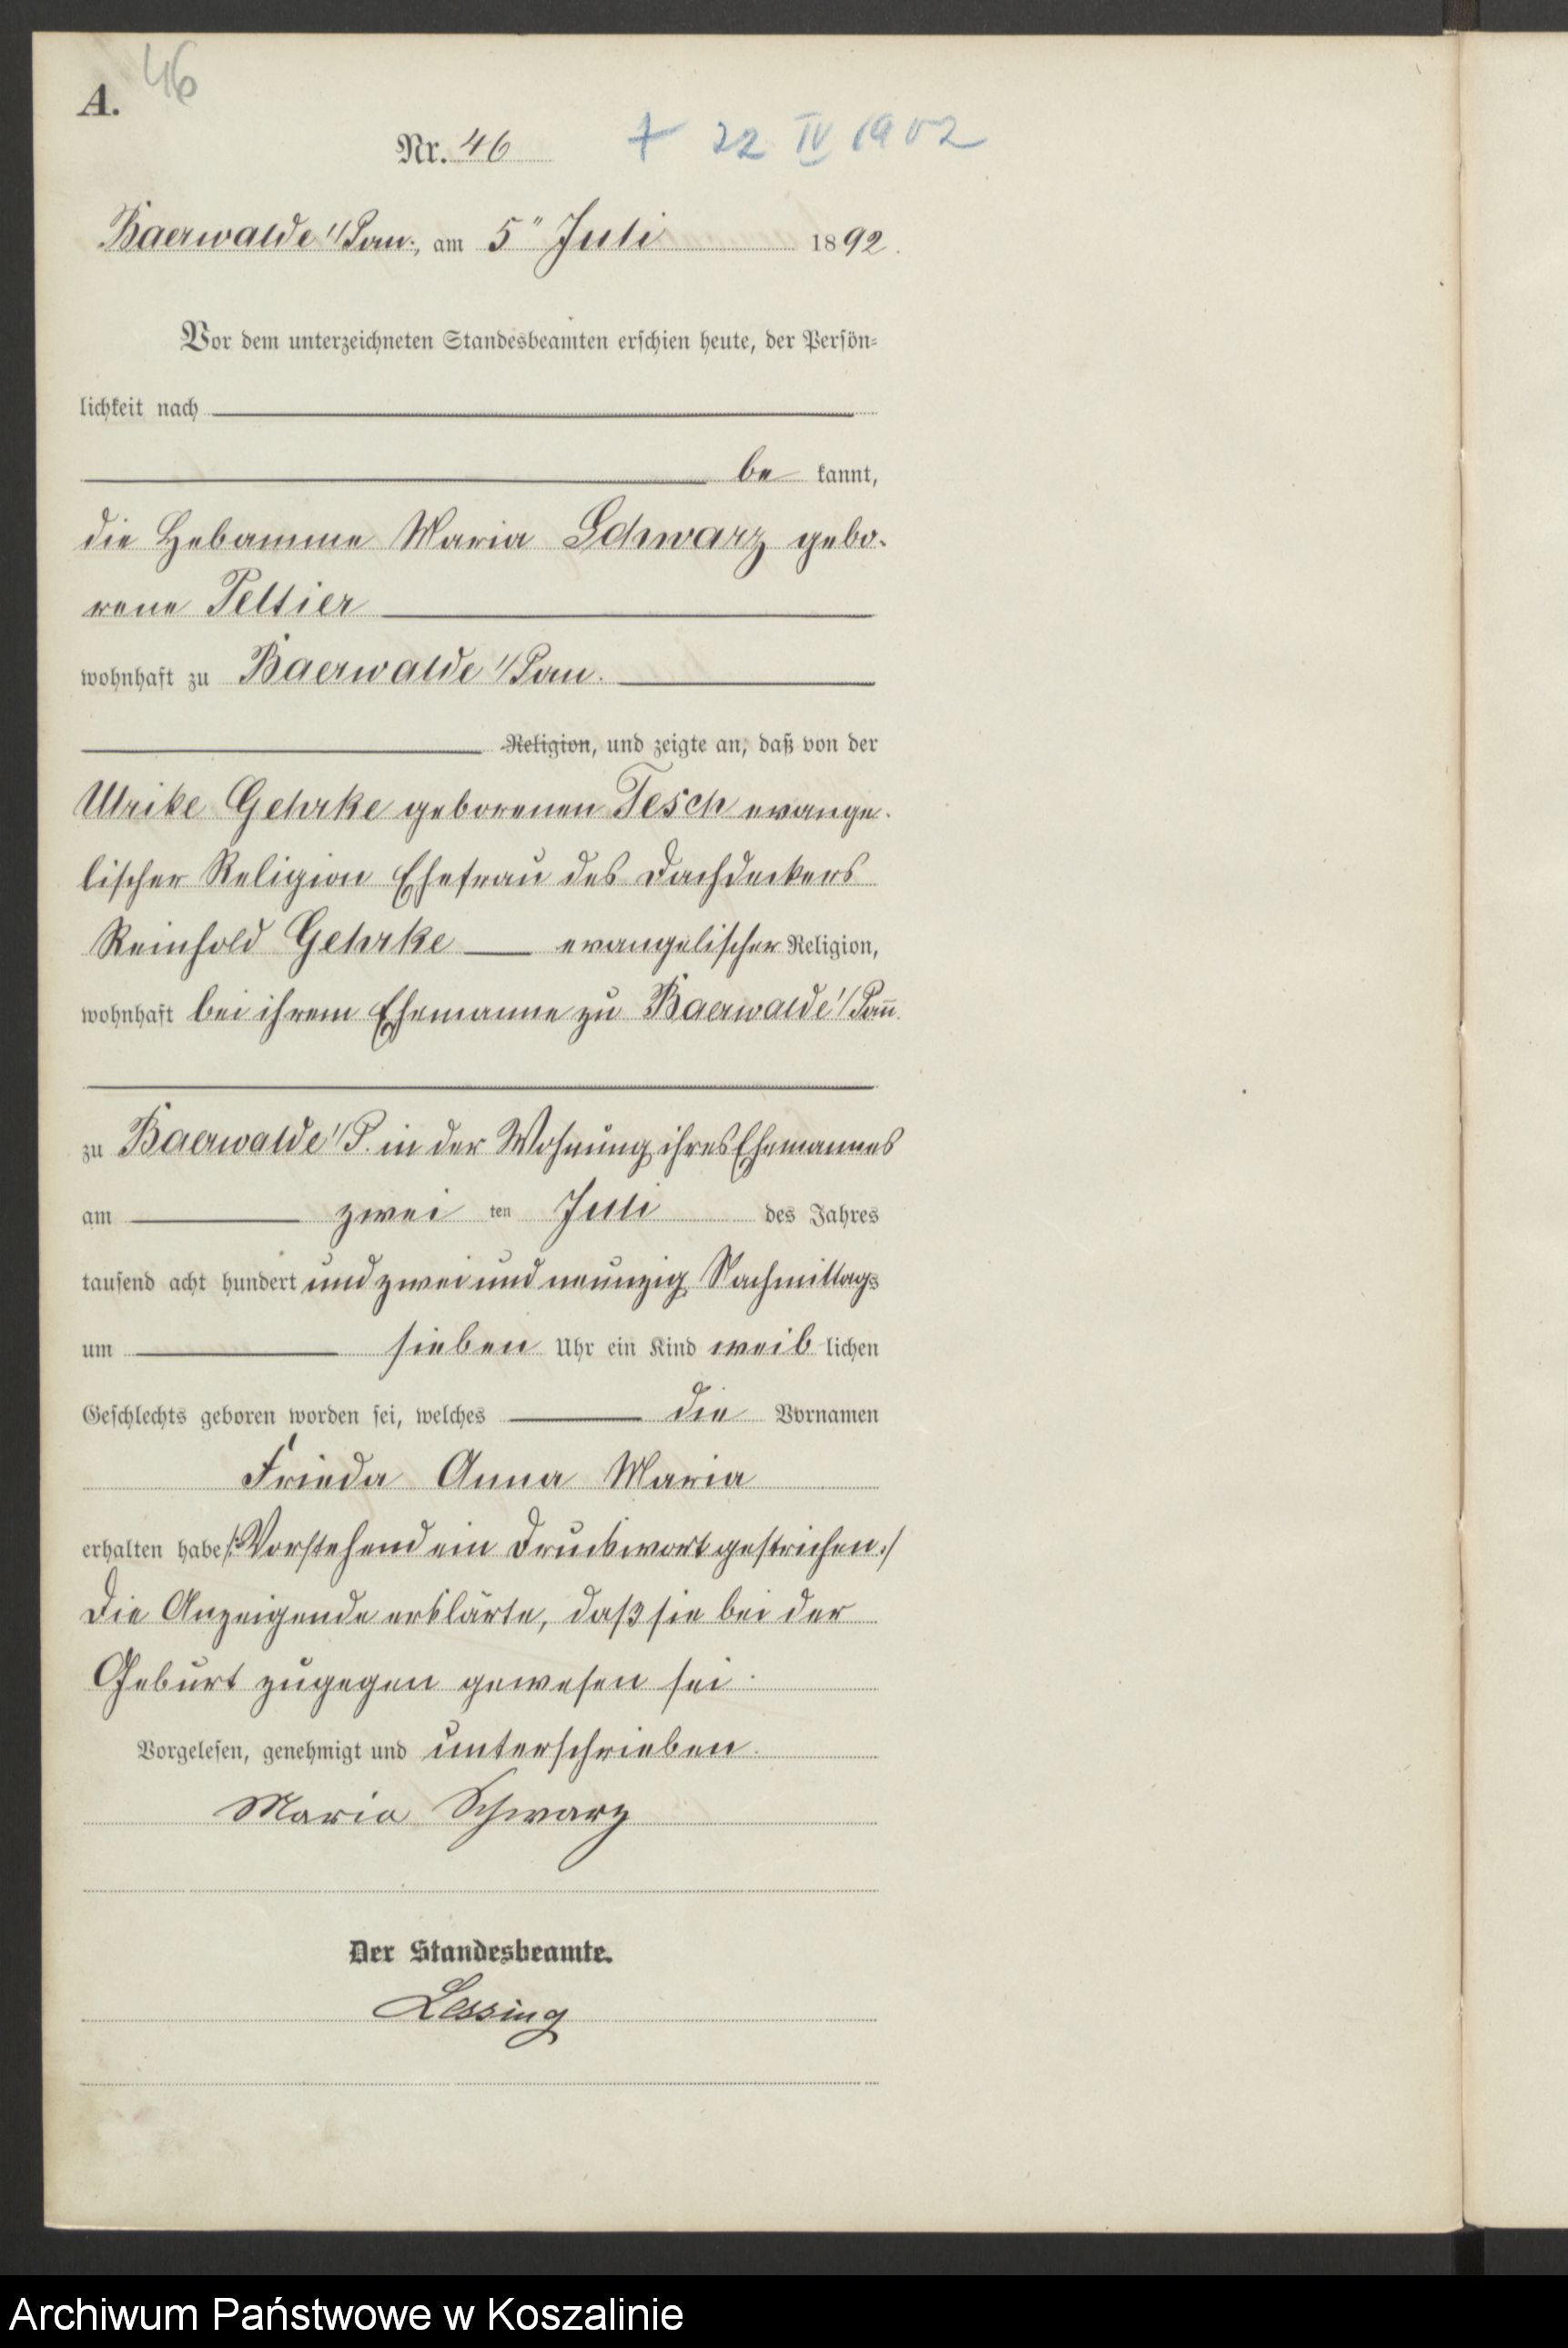 46
A.
Nr. 46 + 22 IV 1902
Baerwalde i/Pom., am 5" Juli 1892.
Vor dem unterzeichneten Standesbeamten erschien heute, der Persön-
lichkeit nach
be kannt,
die Hebamme Maria Schwarz gebo-
rene Peltier
wohnhaft zu Baerwalde i/Pom.
Religion, und zeigte an, daß von der
Ulrike Gehrke geborenen Tesch evange-
lischer Religion Ehefrau des Dachdeckers
Reinhold Gehrke evangelischer Religion,
wohnhaft bei ihrem Ehemanne zu Baerwalde i/Pom.
zu Baerwalde i/P. in der Wohnung ihres Ehemannes
am zwei ten Juli des Jahres
tausend acht hundert und zwei und neunzig Nachmittags
um sieben Uhr ein Kind weib lichen
Geschlechts geboren worden sei, welches die Vornamen
Frieda Anna Maria
erhalten habe /: Vorstehend ein Druckwort gestrichen. /
Die Anzeigende erklärte, daß sie bei der
Geburt zugegen gewesen sei.
Vorgelesen, genehmigt und unterschrieben.
Maria Schwarz
Der Standesbeamte.
Lessing
Archiwum Państwowe w Koszalinie